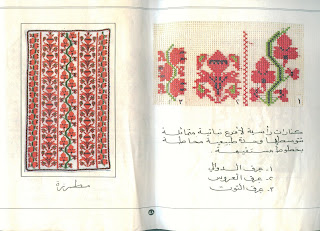 ١
٢
٣
كنارات رأسية لأفرع نباتية متماثلة
تتوسطها وحدة طبيعية محاطة
بخطوط مستقيمة
١ـ عرق الدوالي
٢ـ عرق العروس
٣ـ عرق التوت
مطرزة